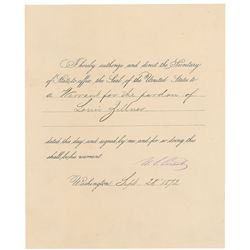 I hereby authorize and direct the Secretary
of State to affix the Seal of the United States to
a Warrant for the pardon of
Louis Zillner
dated this day and signed by me; and for so doing this
shall be his warrant.
U. S. Grant
Washington, Sept. 28, 1872